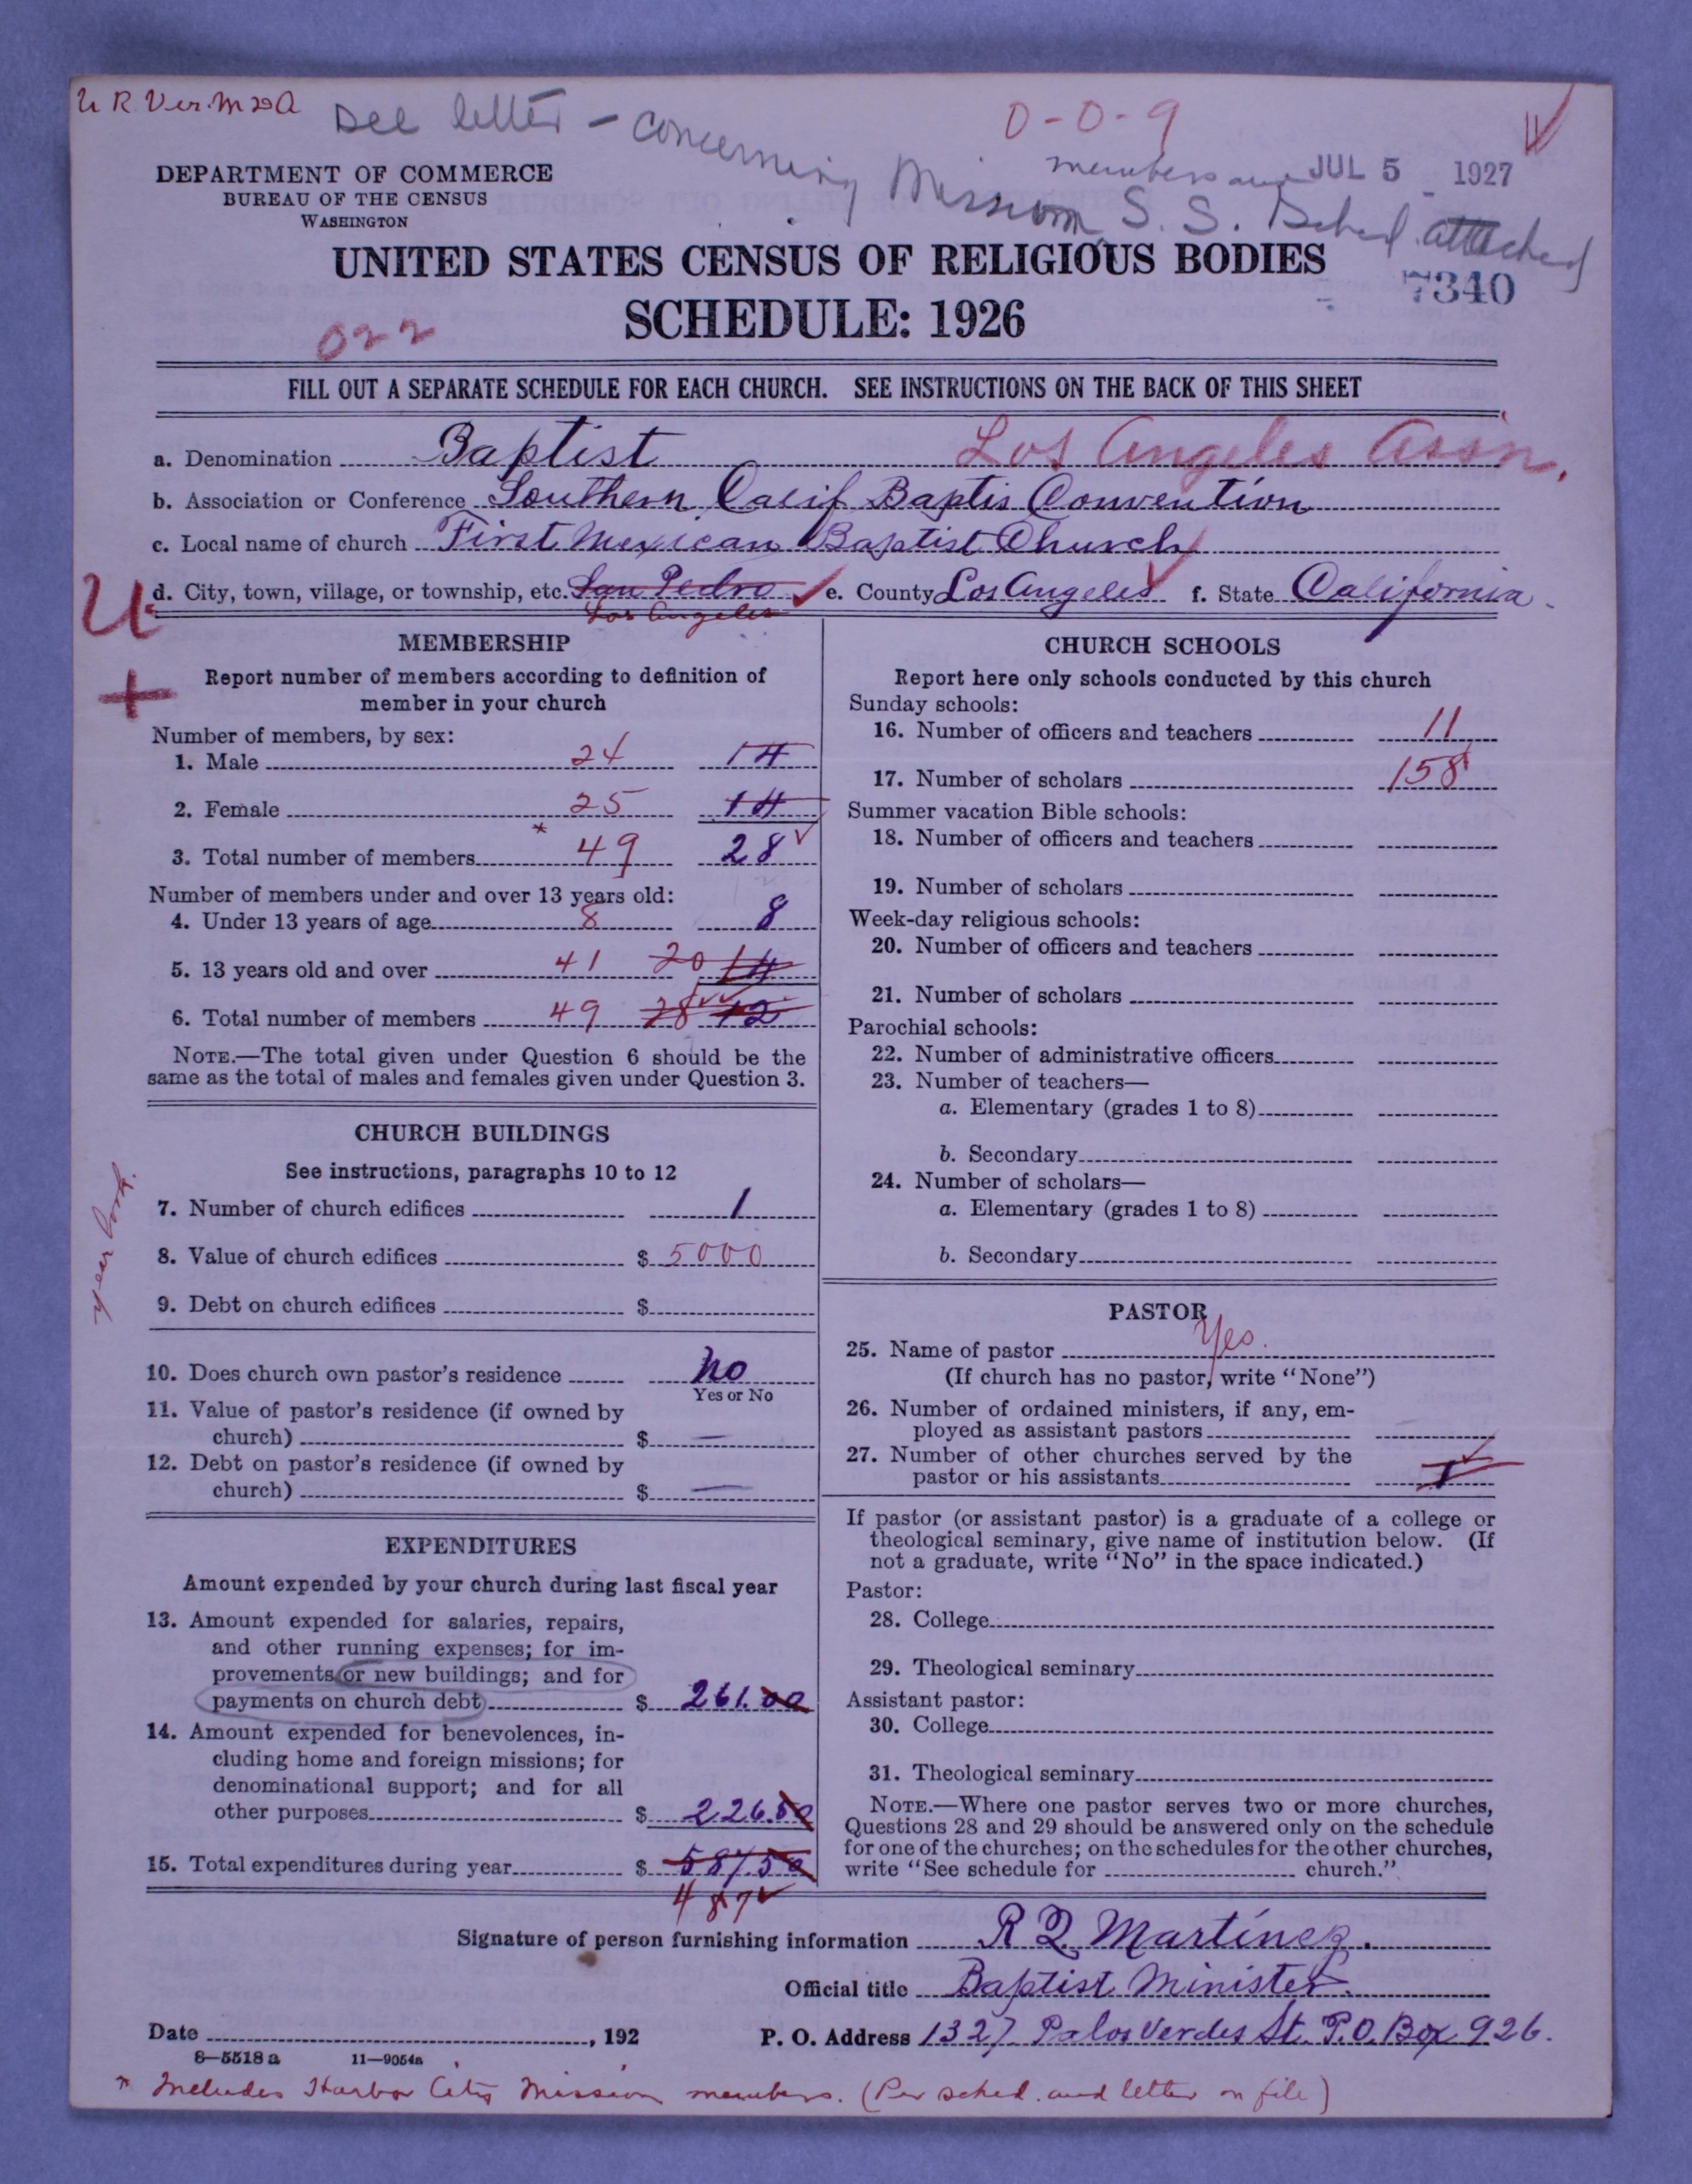 U R Ver. M
See letter - concerning Mission S. S. Sched. attached
members and
0-0-9
JUL 5 1927
DEPARTMENT OF COMMERCE
BUREAU OF THE CENSUS
WASHINGTON
UNITED STATES CENSUS OF RELIGIOUS BODIES
7340
SCHEDULE: 1926
022
FILL OUT A SEPARATE SCHEDULE FOR EACH CHURCH. SEE INSTRUCTIONS ON THE BACK OF THIS SHEET
a. Denomination Baptist Los Angeles Assn.
b. Association or Conference Southern Calif Baptis Convention
c. Local name of church First Mexican Baptist Church
U d. City, town, village, or township, etc. San Pedro e. County Los Angeles f. State California
Los Angeles
+
MEMBERSHIP
Report number of members according to definition of
member in your church
Number of members, by sex:
1. Male 24 14
2. Female 25 14
3. Total number of members * 49 28
Number of members under and over 13 years old:
4. Under 13 years of age 8 8
5. 13 years old and over 41 20 14
6. Total number of members 49 28 12
NOTE.—The total given under Question 6 should be the
same as the total of males and females given under Question 3.
CHURCH BUILDINGS
See instructions, paragraphs 10 to 12
year book.
7. Number of church edifices 1
8. Value of church edifices $ 5000
9. Debt on church edifices $
10. Does church own pastor's residence no
Yes or No
11. Value of pastor's residence (if owned by
church) $ —
12. Debt on pastor's residence (if owned by
church) $ —
EXPENDITURES
Amount expended by your church during last fiscal year
13. Amount expended for salaries, repairs,
and other running expenses; for im-
provements or new buildings; and for
payments on church debt $ 261.00
14. Amount expended for benevolences, in-
cluding home and foreign missions; for
denominational support; and for all
other purposes $ 226.50
15. Total expenditures during year $ 587.50
487
CHURCH SCHOOLS
Report here only schools conducted by this church
Sunday schools:
16. Number of officers and teachers 11
17. Number of scholars 158
Summer vacation Bible schools:
18. Number of officers and teachers
19. Number of scholars
Week-day religious schools:
20. Number of officers and teachers
21. Number of scholars
Parochial schools:
22. Number of administrative officers
23. Number of teachers—
a. Elementary (grades 1 to 8)
b. Secondary
24. Number of scholars—
a. Elementary (grades 1 to 8)
b. Secondary
PASTOR
25. Name of pastor Yes.
(If church has no pastor, write "None")
26. Number of ordained ministers, if any, em-
ployed as assistant pastors
27. Number of other churches served by the
pastor or his assistants 1
If pastor (or assistant pastor) is a graduate of a college or
theological seminary, give name of institution below. (If
not a graduate, write "No" in the space indicated.)
Pastor:
28. College
29. Theological seminary
Assistant pastor:
30. College
31. Theological seminary
NOTE.—Where one pastor serves two or more churches,
Questions 28 and 29 should be answered only on the schedule
for one of the churches; on the schedules for the other churches,
write "See schedule for church."
Signature of person furnishing information R Q Martinez.
Official title Baptist Minister.
Date , 192 P. O. Address 1327 Palos Verdes St. P.O. Box 926.
8—5518 a 11—9054a
* Includes Harbor City Mission members. (Per sched. and letter on file)